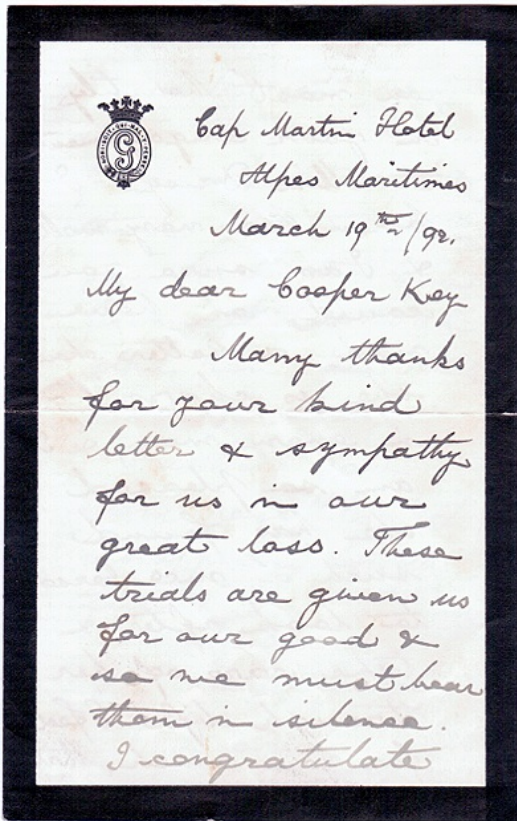 HONI·SOIT·QUI·MAL·Y·PENSE
G
Cap Martin Hotel
Alpes Maritimes
March 19th/92.
My dear Cooper Key
Many thanks
for your kind
letter & sympathy
for us in our
great loss. These
trials are given us
for our good &
so we must bear
them in silence.
I congratulate